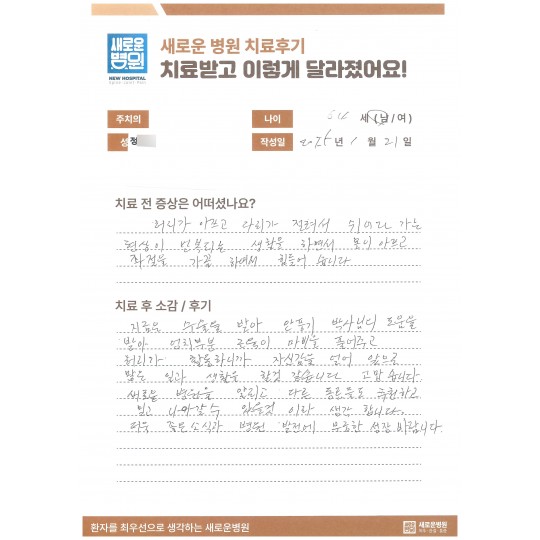 새로운
병원
NEW HOSPITAL
새로운 병원 치료후기
치료받고 이렇게 달라졌어요!
주치의
나이 54 세 (남/여)
성 정
작성일 년 1 월 21 일
치료 전 증상은 어떠셨나요?
허리가 아프고 다리가 절려서 쉬었다 가는
현상이 반복되는 생활을 하면서 몸이 아프고
좌절을 가끔 하여서 힘들어 습니다
치료 후 소감 / 후기
지금은 수술을 받아 박사님의 도움을
받아 허리부분 마비을 풀어주고
허리가 활동하니까 자신감을 얻어 앞으로
많은 일과 생활을 할것 같습니다 고맙습니다.
새로운 병원을 알리고 다른 동료들도 추천하고
믿고 나아갈 수 있을것 이라 생각 합니다.
더욱 좋은소식과 병원 발전에 무궁한 성장 바랍니다.
환자를 최우선으로 생각하는 새로운병원
새로운병원